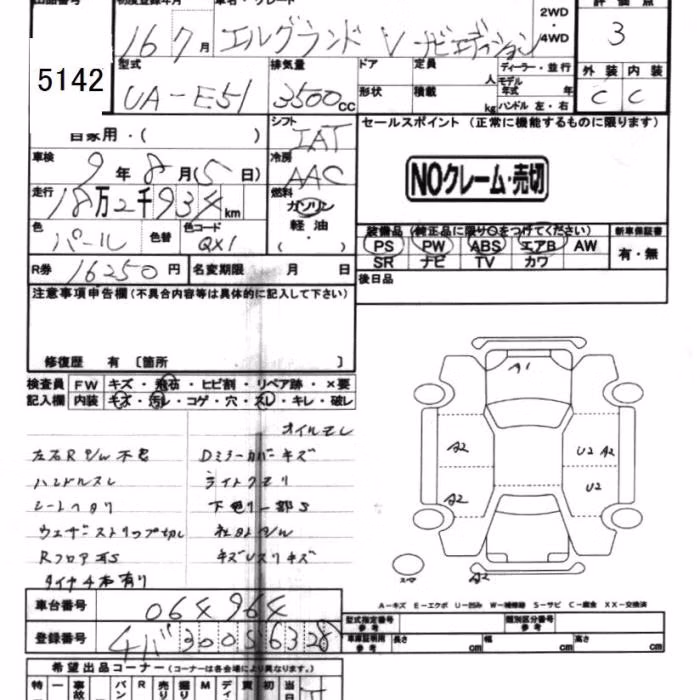 出品番号 初度登録年月 車名・グレード 2WD・4WD 評価点
16 7月 エルグランド V ナビエディション 3
5142
型式 排気量 ドア 定員 人 ディーラー・並行
UA-E51 3500cc 形状 積載 kg モデル年式 年 ハンドル 左・右
外装 内装
C C
自家用・( )
シフト IAT
セールスポイント(正常に機能するものに限ります)
車検 9年8月(5日)
冷房 AAC
NOクレーム・売切
走行 18万2千934km
燃料 ガソリン 軽油 ・( )
色 パール 色替 色コード QX1
装備品(純正品に限り○をつけてください) 新車保証書
PS PW ABS エアB AW
SR ナビ TV カワ
有・無
R券 16250円 名変期限 月 日
後日品
注意事項申告欄(不具合内容等は具体的に記入して下さい)
修復歴 有 〔箇所 〕
検査員 FW キズ・飛石・ヒビ割・リペア跡・×要
記入欄 内装 キズ・汚レ・コゲ・穴・スレ・キレ・破レ
オイルモレ
左右R P/W 不良 Dミラーカバーキズ
ハンドルスレ ライトクモリ
シートヘタリ 下廻り一部S
ウェザーストリップ切レ
RフロアS キズUスリキズ
タイヤ4本有り
A1
A2 U2 A2
A2 U2
スマ A2
A-キズ E-エクボ U-凹み W-補修跡 S-サビ C-腐食 XX-交換済
車台番号 064964
型式指定番号 参考 類別区分番号 参考
登録番号
車庫証明用 参考 長さ cm 幅 cm 高さ cm
希望出品コーナー(コーナーは各会場により異なります。)